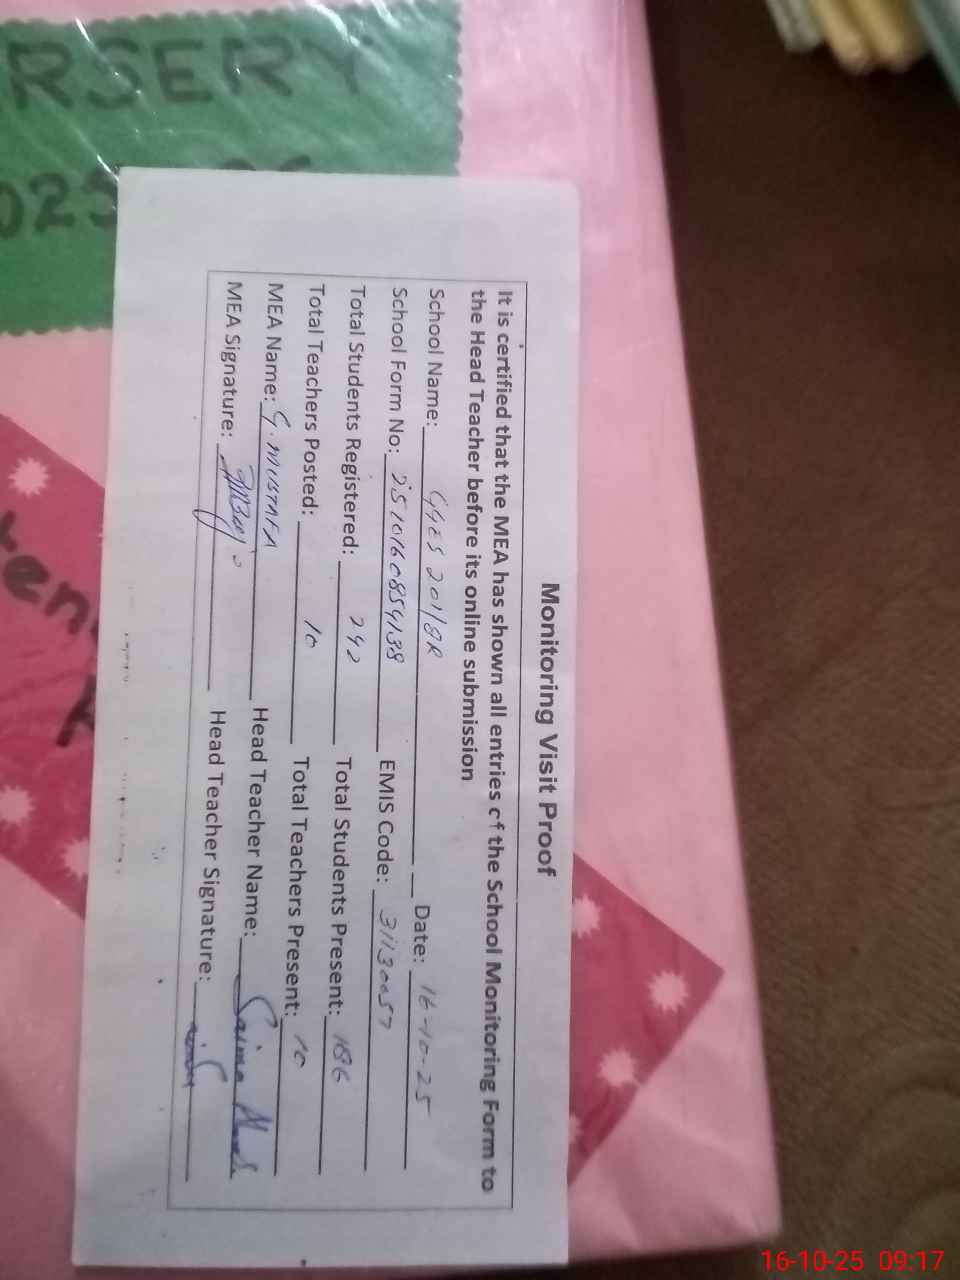 RSERY
025
Monitoring Visit Proof
It is certified that the MEA has shown all entries of the School Monitoring Form to
the Head Teacher before its online submission
School Name: GGES 201/8R Date: 16-10-25
School Form No: 2510160854138 EMIS Code: 31130057
Total Students Registered: 242 Total Students Present: 186
Total Teachers Posted: 10 Total Teachers Present: 10
MEA Name: G. MUSTAFA Head Teacher Name: Saima
MEA Signature: Head Teacher Signature:
16-10-25 09:17